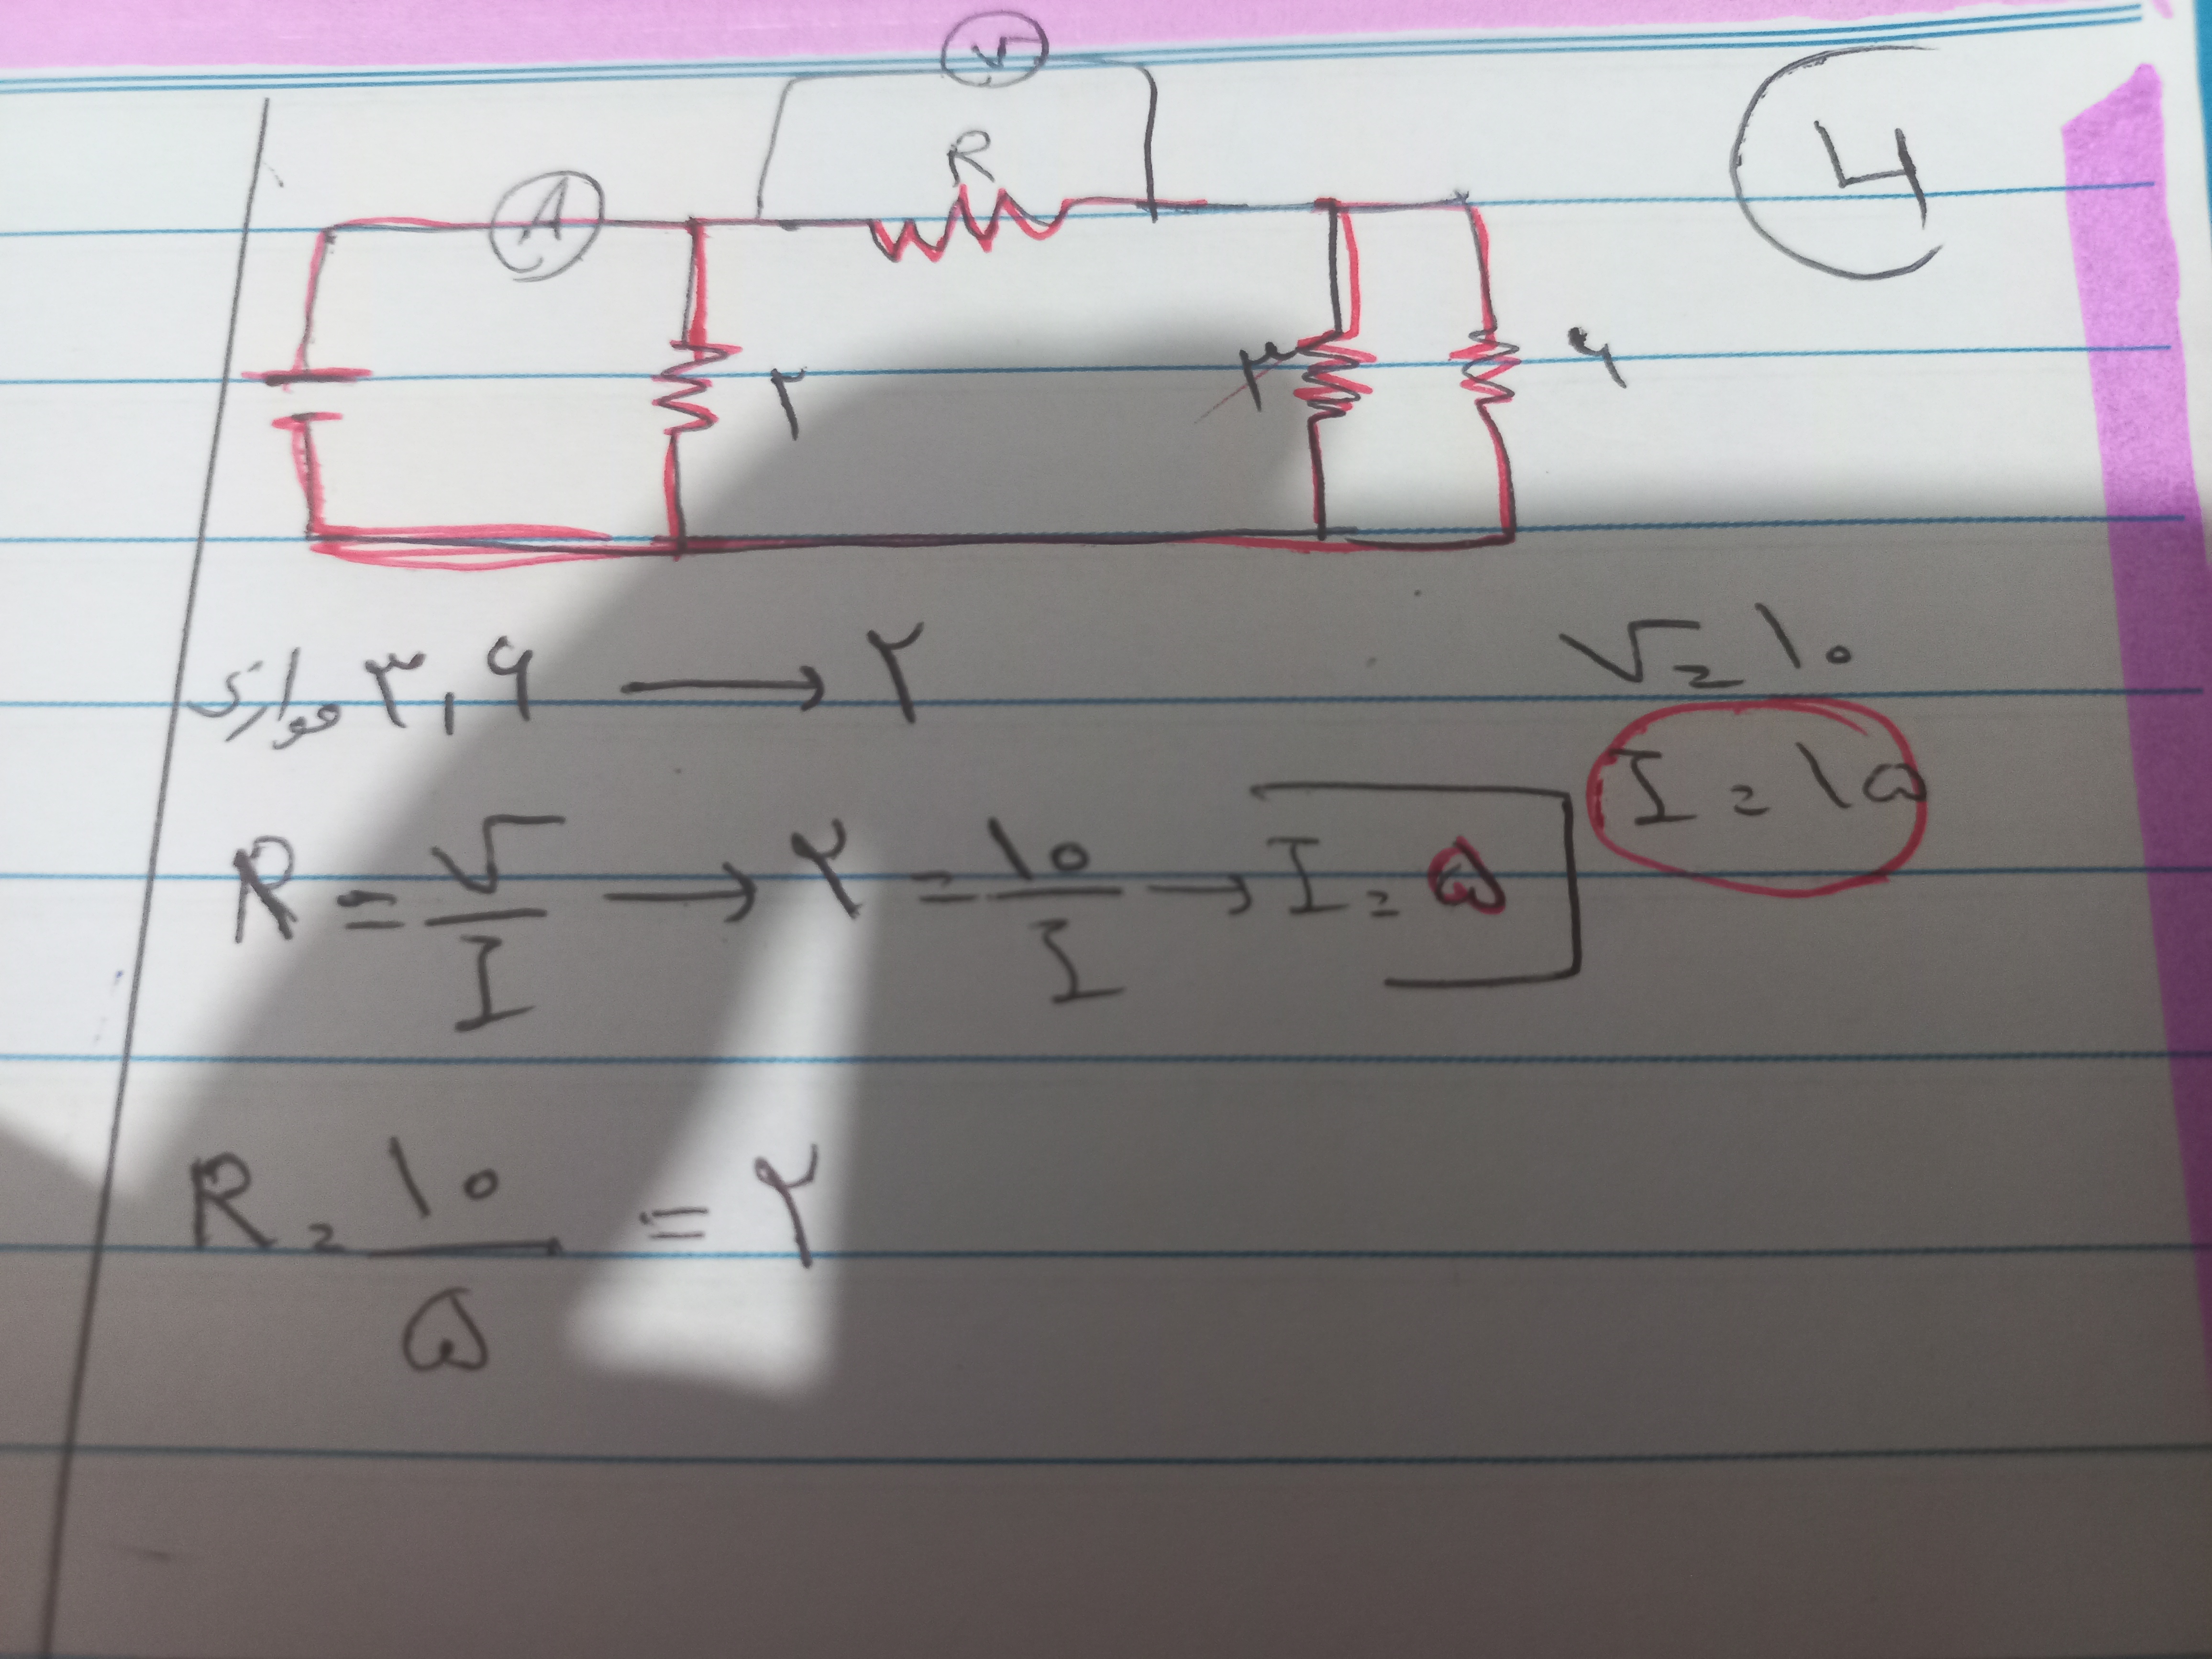 V
4
R
A
۲
۳
۶
موازی ۳,۶ → ۲
V = ۱۰
I = ۱۵
R = V/I → ۲ = ۱۰/I → I = ۵
R = ۱۰/۵ = ۲